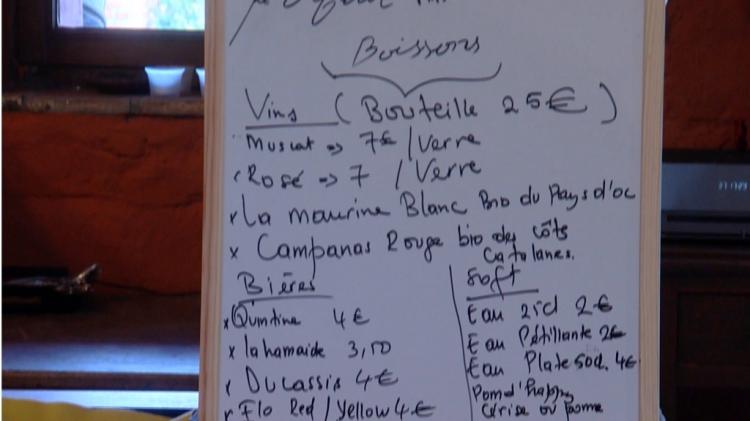 Boissons
Vins ( Bouteille 25€ )
Muscat => 7€ / Verre
Rosé => 7 / Verre
x La maurine Blanc Bio du Pays d'oc
x Campanas Rouge bio des côts
Catalanes.
Bières
x Quintine 4€
x la hamaide 3,50
x Ducassis 4€
x Flo Red / Yellow 4€
Soft
Eau 25cl 2€
Eau Pétillante 2€
Eau Plate 50cl. 4€
Pomd'happy
Cérise ou pomme